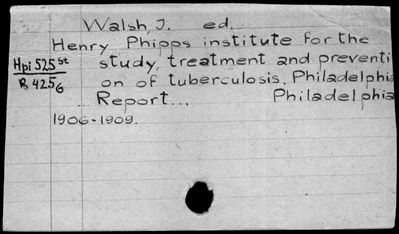 Walsh, J. ed.
Henry Phipps institute for the
Hpi 525 st study, treatment and preventi
R 425 6 on of tuberculosis. Philadelphia
... Report... Philadelphia
1906-1909.